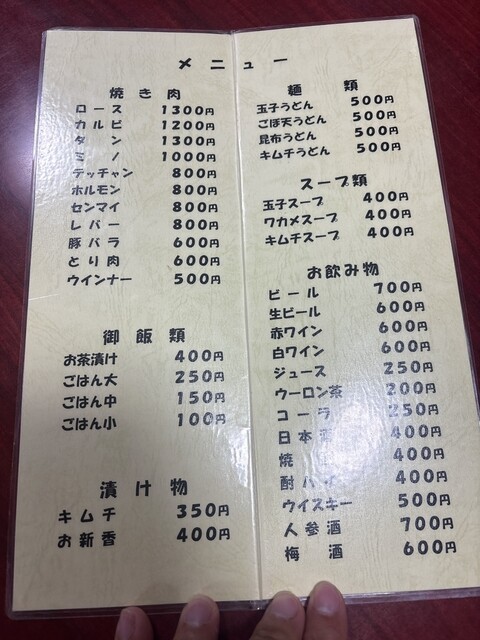 メニュー
焼き肉
ロース 1300円
カルビ 1200円
タン 1300円
ミノ 1000円
テッチャン 800円
ホルモン 800円
センマイ 800円
レバー 800円
豚バラ 600円
とり肉 600円
ウインナー 500円
御飯類
お茶漬け 400円
ごはん大 250円
ごはん中 150円
ごはん小 100円
漬け物
キムチ 350円
お新香 400円
麺類
玉子うどん 500円
ごぼ天うどん 500円
昆布うどん 500円
キムチうどん 500円
スープ類
玉子スープ 400円
ワカメスープ 400円
キムチスープ 400円
お飲み物
ビール 700円
生ビール 600円
赤ワイン 600円
白ワイン 600円
ジュース 250円
ウーロン茶 200円
コーラ 250円
日本 400円
焼 400円
酎ハイ 400円
ウイスキー 500円
人参酒 700円
梅酒 600円